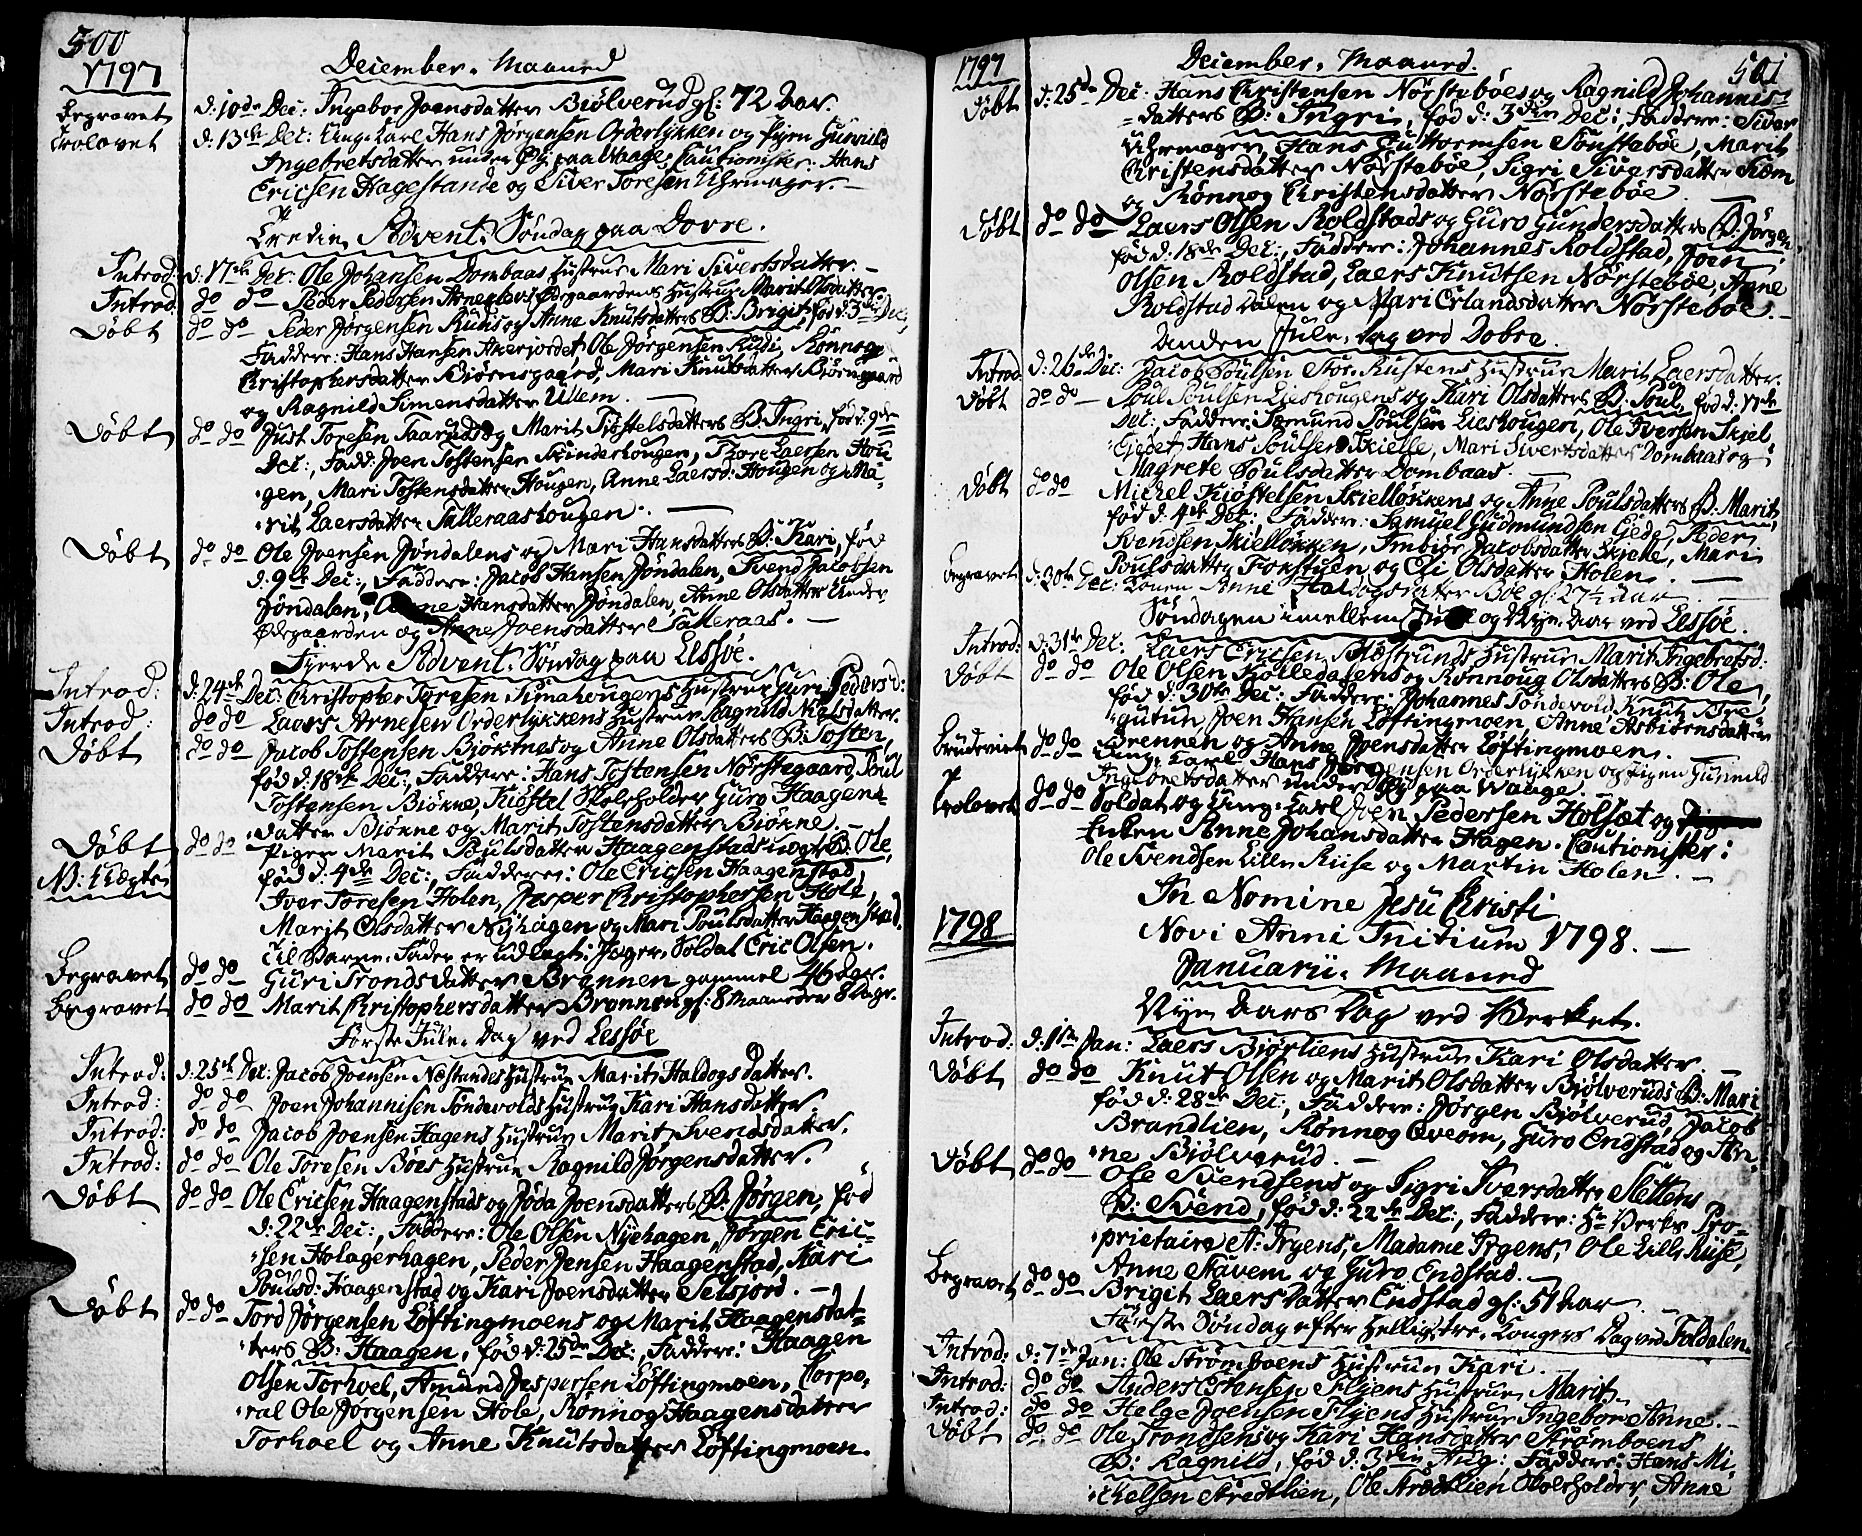 500
1797
December Maaned
Begravet d: 10de Dec: Ingebor Joensdatter Biølverud gl: 72 Aar.
Trolovet d: 13de Dec: Ung-Karl Hans Jørgensen Orderløkken og Pigen Gunnild
Ingebretsdatter under Øy paa Waage, Cautionister: Hans
Ericsen Hagestande og Siver Toresen Uhrmager. —
Tredie Advent-Søndag paa Dovre.
Introd: d: 17de Dec: Ole Johansen Dombaas Hustrue Mari Sivertsdatter. —
Introd: do do Peder Pedersen Ødegaardens Hustrue Marit Olsdatter
Døbt do do Peder Jørgensen Ruds og Anne Knutsdatters B: Brigit, fød d: 3de Dec,
Faddere: Hans Hansen Akerjordet, Ole Jørgensen Rudi, Rønnog
Christophersdatter Biørnsgaard, Mari Knutsdatter Biørnsgaard
og Ragnild Simensdatter Ullem. —
Døbt do do Just Toresen Taaruds og Marit Kiøstelsdatters B: Ingri, fød d: 9de
Dec:, Fadd: Joen Tostensen Kinderhougen, Thore Laersen Hou-
gen, Mari Tostensdatter Hougen, Anne Laersd: Hougen og Ma-
rit Laersdatter Talleraashougen. —
Døbt do do Ole Joensen Jøndalens og Mari Hansdatters B: Kari, fød
d: 9de Dec:, Faddere: Jacob Hansen Jøndalen, Svend Jacobsen
Jøndalen, Anne Hansdatter Jøndalen, Anne Olsdatter Under
Ødegaarden og Anne Joensdatter Talleraas. —
Fjerde Advent-Søndag paa Lessøe.
Introd: d: 24de Dec: Christopher Toresen Simahougens Hustrue Guri Pedersd:
Introd: do do Laers Arnesen Orderløkkens Hustrue Ragnild Nielsdatter.
Døbt do do Jacob Tostensen Biøknes og Anne Olsdatters B: Tosten,
fød d: 18de Dec:, Faddere: Hans Tostensen Nørstegaard, Poul
Tostensen Biøkne, Kiøstel Skoleholder, Guro Haagens-
datter Biøkne og Marit Tostensdatter Biøkne. —
Døbt do do Pigen Marit Poulsdatter Haagenstads uægte B: Ole,
N: Uægte fød d: 4de Dec:, Faddere: Ole Ericsen Haagenstad,
Iver Toresen Holen, Jesper Christophersen Hole,
Marit Olsdatter Nyhagen og Mari Poulsdatter Haagenstad.
Til Barne-Fader er udlagt: Jæger-Soldat Eric Olsen.
Begravet do do Guri Trondsdatter Brennen gammel 46 Dgr.
Begravet do do Marit Christophersdatter Brennen gl: 8 Maaneder 8 Dagr.
Første Jule-Dag ved Lessøe
Introd: d: 25de Dec: Jacob Joensen Nestandes Hustrue Marit Haldogsdatter.
Introd: do do Joen Johannisen Tøndevolds Hustrue Kari Hansdatter.
Introd: do do Jacob Joensen Hagens Hustrue Marit Svensdatter.
Introd: do do Ole Toresen Bøes Hustrue Ragnild Jørgensdatter.
Døbt do do Ole Ericsen Haagenstads og Jøda Joensdatters B: Jørgen, fød
d: 22de Dec:, Faddere: Ole Olsen Nyehagen, Jørgen Eric-
sen Holagerhagen, Peder Jensen Haagenstad, Kari
Poulsd: Haagenstad og Kari Joensdatter Selsjord. —
Døbt do do Tord Jørgensen Løftingmoens og Marit Haagensdat-
ters B: Haagen, fød d: 25de Dec:, Faddere: Haagen
Olsen Torhoel, Amund Jespersen Løftingmoen, Corpo-
ral Ole Jørgensen Hole, Rønnog Haagensdatter
Torhoel og Anne Knutsdatter Løftingmoen.
1797
December Maaned.
501
Døbt d: 25de Dec: Hans Christensen Nørstebøes og Ragnild Johannis-
datters B: Ingri, fød d: 3die Dec:, Faddere: Siver
Uhrmager, Hans Guttormsen Sønstebøe, Marit
Christensdatter Nørstebøe, Sigri Siversdatter
og Rønnog Christensdatter Nørstebøe. —
Døbt do do Laers Olsen Roldstads og Guro Gundersdatters B: Jørgen,
fød d: 18de Dec:, Faddere: Johannes Roldstad, Joen
Olsen Roldstad, Laers Knutsen Nørstebøe, Anne
Roldstaddalen og Mari Erlandsdatter Nørstebøe. —
Anden Jule-Dag ved Dovre.
Introd: d: 26de Dec: Jacob Poulsen Stor-Rustens Hustrue Marit Laersdatter.
Døbt do do Poul Poulsen Lieshougens og Kari Olsdatters B: Poul, fød d: 17de
Dec: Faddere: Samund Poulsen Lieshougen, Ole Iversen Skiel,
Hans Poulsen Skielle, Mari Sivertsdatter Dombaas og
Magrete Poulsdatter Dombaas.
Døbt do do Michel Kiøstelsen Skielløkkens og Anne Poulsdatters B: Marit,
fød d: 4de Dec: Faddere: Samuel Gudmundsen Giedt, Peder
Svendsen Skielløkken, Imbiør Jacobsdatter Skielle, Mari
Poulsdatter Fokstuen og Eli Olsdatter Holen. —
Begravet d: 30te Dec: Konen Anne Haldogsdatter Bøe gl: 27½ Aar. —
Søndagen imellem Jule og Nye-Aar ved Lessøe.
Introd: d: 31te Dec: Laers Ericsen Hustrue Marit Ingebretsd:
Døbt do do Ole Olsen Kolledalens og Rønnoug Olsdatters B: Ole,
fød d: 30te Dec: Faddere: Johannes Tøndevold, Knut
Joen Hansen Løftingmoen, Anne Asbiørnsdatter
Brennen og Anne Joensdatter Løftingmoen.
Brudeviet do do Ung-Karl Hans Jørgensen Orderløkken og Pigen Gunnild
Ingebretsdatter under Øy paa Waage.
Trolovet do do Soldat og Ung-Karl Joen Pedersen Holsæt og
Enken Anne Johansdatter Hagen. Cautionister:
Ole Svendsen Lille Ruse og Martin Holen. —
In Nomine Jesu Christi
1798
Novi Anni Initium 1798. —
Januarii Maaned
Nye Aars Dag ved Verket.
Introd: d: 1ste Jan: Laers Biørliens Hustrue Kari Olsdatter. —
Døbt do do Knut Olsen og Marit Olsdatter Biølveruds B: Mari
fød d: 28de Dec:, Faddere: Jørgen Biølverud, Jacob
Brandlien, Rønnog Qveom, Guro Endstad og An-
ne Biølverud. —
Døbt do do Ole Svendsens og Sigri Iversdatter Slettens
B: Svend, fød d: 22de Dec:, Faddere: Hr Verks Pro-
prietaire A: Irgens, Madame Irgens, Ole Lille Ruse,
Anne Stavem og Guro Endstad. —
Begravet do do Brigit Laersdatter Endstad gl: 51 Aar.
Første Søndag efter Hellig-tre-Kongers Dag ved Foldalen.
Introd: d: 7de Jan: Ole Strømboens Hustrue Kari.
Introd: do do Anders Estensen Hustrue Marit.
Introd: do do Helge Joensen Hustrue Ingebor Anne. —
Døbt do do Ole Trondsens og Kari Hansdatter Strømboens
B: Ragnild, fød d: 3die Aug: Faddere: Hans Mi-
chelsen Strædtlien, Ole Strædtlien Skoleholder, Anne